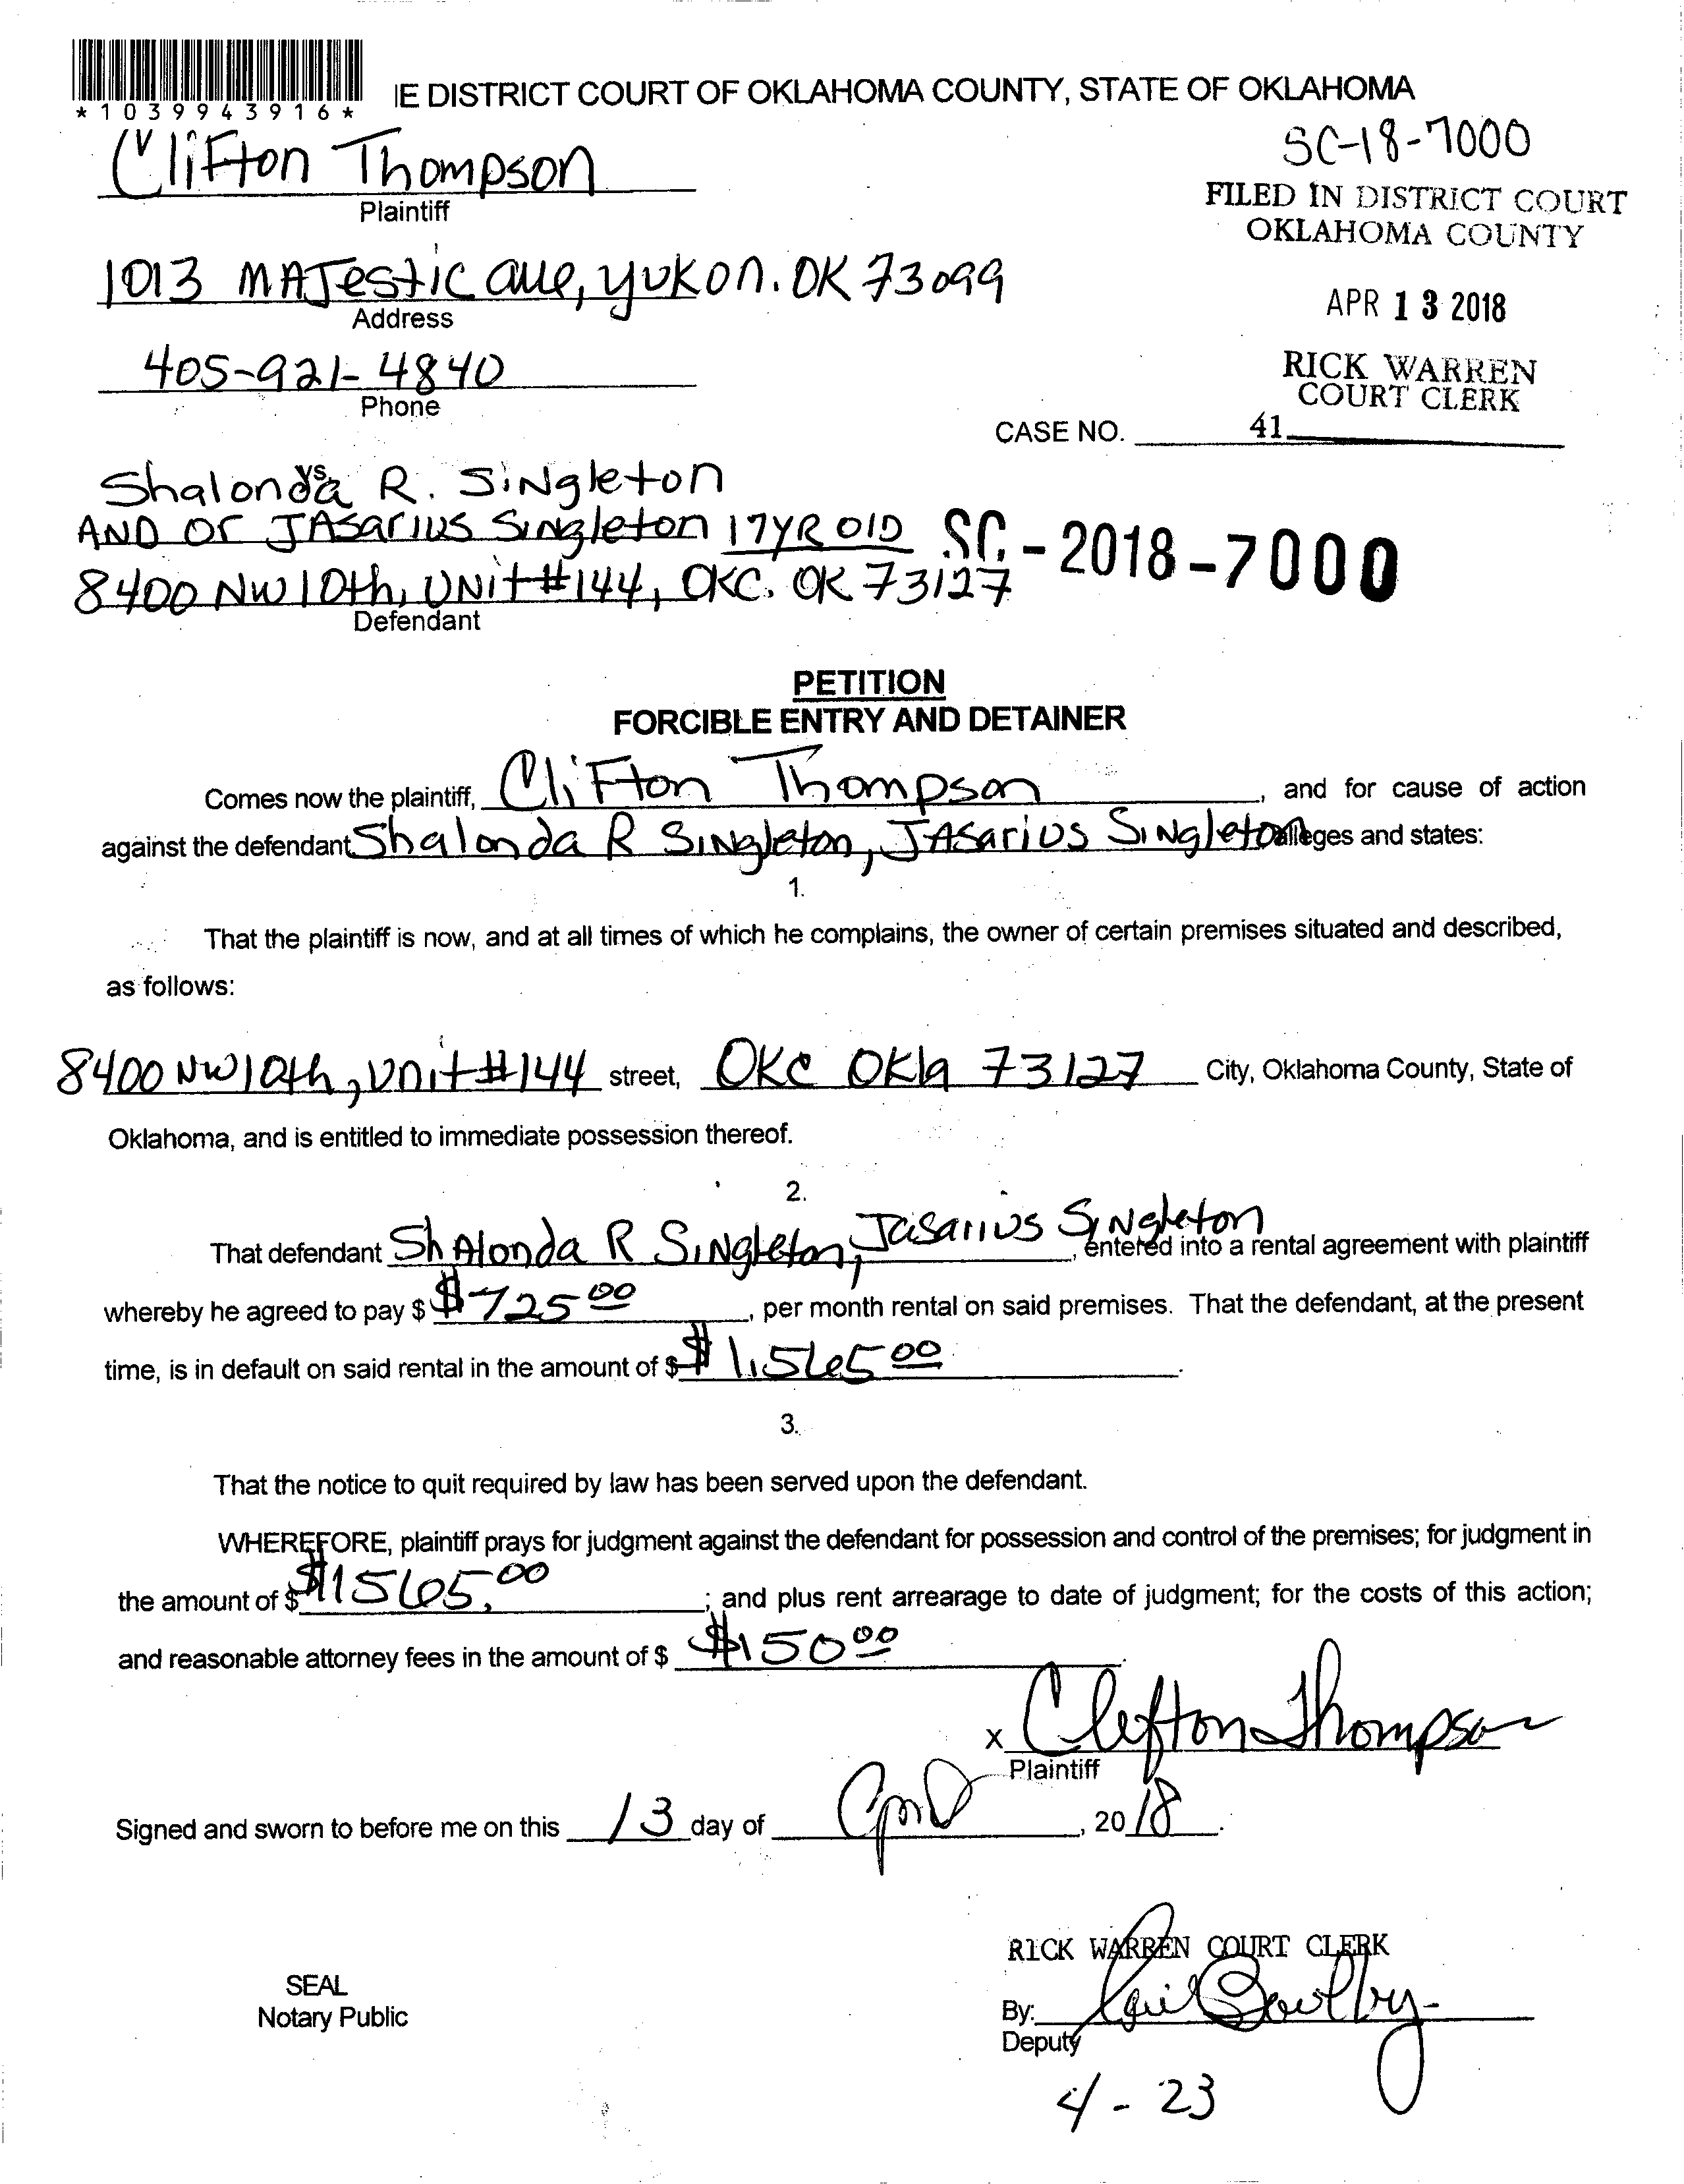 *1039943916*
IE DISTRICT COURT OF OKLAHOMA COUNTY, STATE OF OKLAHOMA
SC-18-7000
Clifton Thompson
Plaintiff
FILED IN DISTRICT COURT
OKLAHOMA COUNTY
1013 MAJestic ave, yukon. OK 73099
Address
APR 13 2018
405-921-4840
Phone
RICK WARREN
COURT CLERK
CASE NO. 41
vs.
Shalonda R. Singleton
AND or JASarius Singleton 17YR OlD
SC-2018-7000
8400 NW 10th, UNit #144, OKC. OK 73127
Defendant
PETITION
FORCIBLE ENTRY AND DETAINER
Comes now the plaintiff, CliFton Thompson, and for cause of action
against the defendant Shalonda R Singleton, JASarius Singleton alleges and states:
1.
That the plaintiff is now, and at all times of which he complains, the owner of certain premises situated and described,
as follows:
8400 NW 10th, Unit #144 street, OKC OKla 73127 City, Oklahoma County, State of
Oklahoma, and is entitled to immediate possession thereof.
2.
That defendant ShAlonda R Singleton, Jasarius Singleton, entered into a rental agreement with plaintiff
whereby he agreed to pay $ $725 00, per month rental on said premises. That the defendant, at the present
time, is in default on said rental in the amount of $ $1,565 00.
3.
That the notice to quit required by law has been served upon the defendant.
WHEREFORE, plaintiff prays for judgment against the defendant for possession and control of the premises; for judgment in
the amount of $ $1565.00; and plus rent arrearage to date of judgment; for the costs of this action;
and reasonable attorney fees in the amount of $ $150 00.
x Clifton Thompson
Plaintiff
Signed and sworn to before me on this 13 day of April, 2018.
RICK WARREN COURT CLERK
SEAL
Notary Public
By:
Deputy
4-23